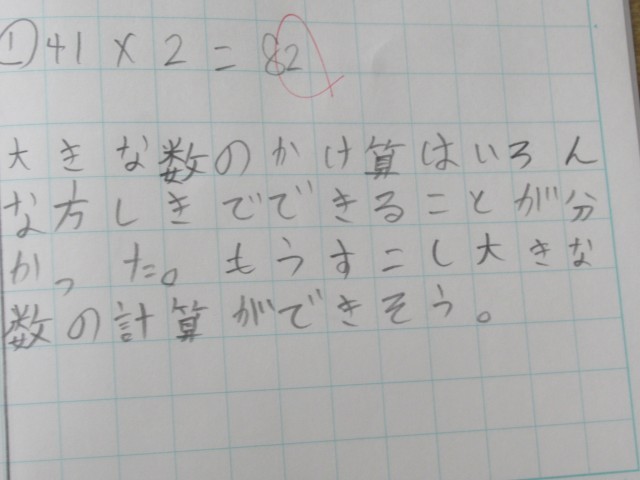 ① 41 × 2 = 82
大きな数のかけ算はいろん
な方しきでできることが分
かった。もうすこし大きな
数の計算ができそう。